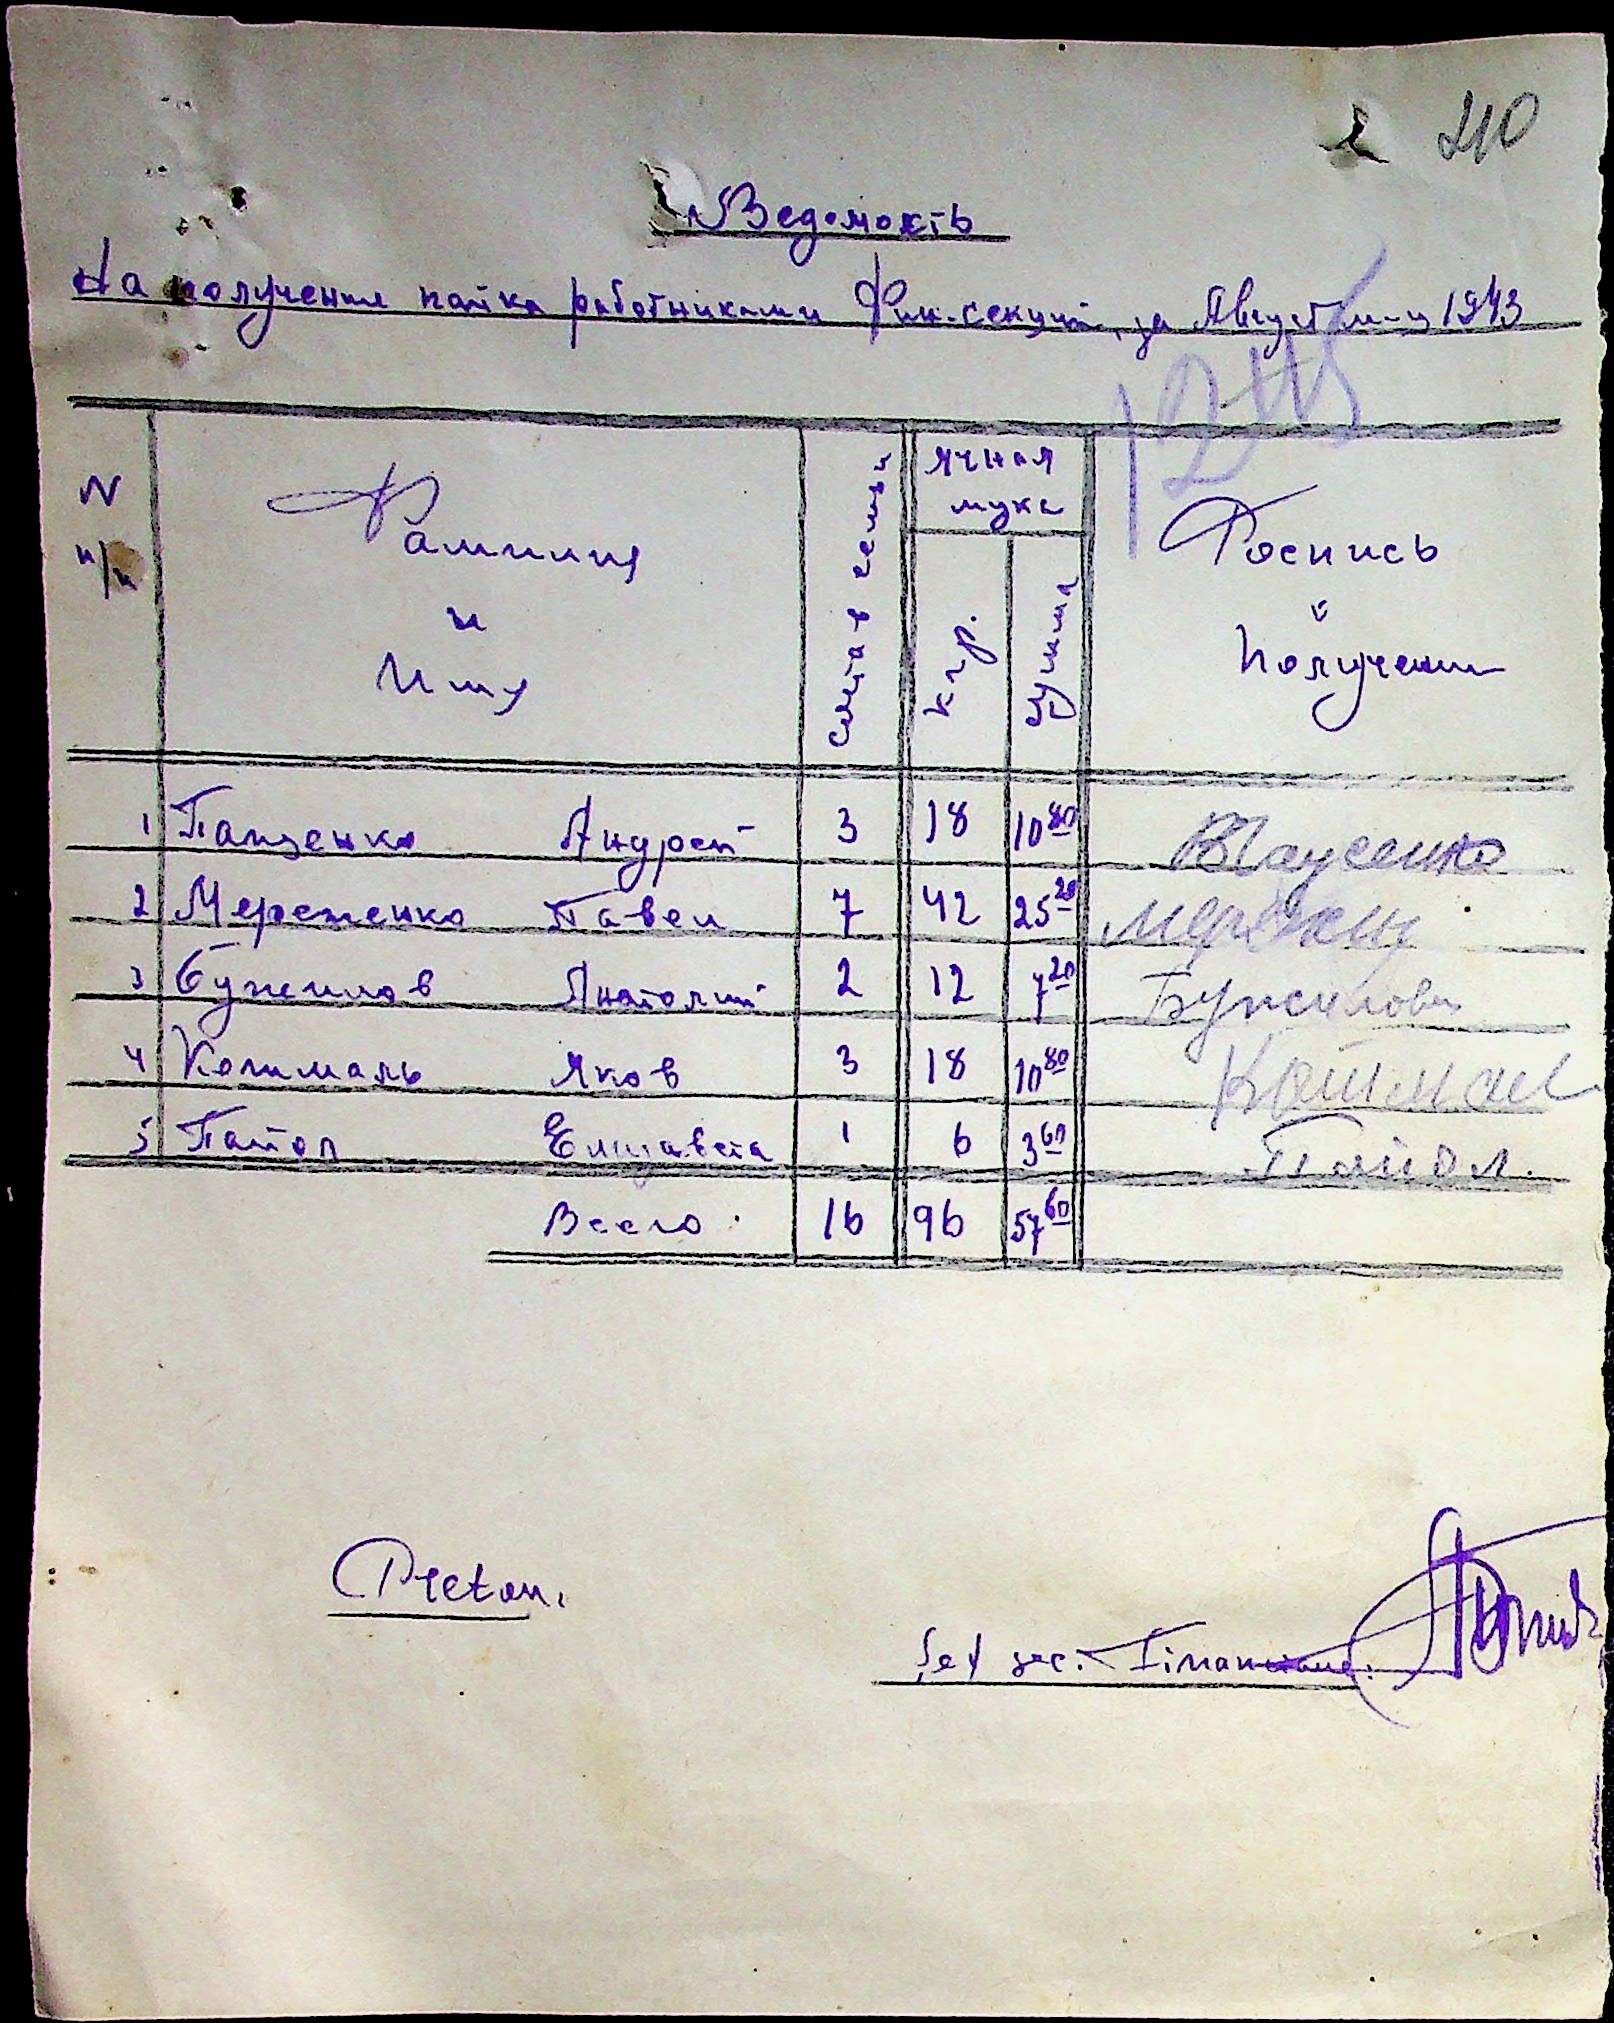 210
Ведомость
На получения пайка работниками Фин-секции, за Август м-ц 1943
N п/п Фамилия и Имя Состав семьи Ячная мука кгр. Сумма Роспись в Получении
1 Пащенко Андрей 3 18 10 80
2 Мереженко Павел 7 42 25 20
3 Бужилов Анатолий 2 12 7 20 Бужилов
4 Кошмаль Яков 3 18 10 80 Кошмал
5 Пайол Елизавета 1 6 3 60 Пайол.
Всего 16 96 57 60
Pretor.
Şef sec. Financiară.